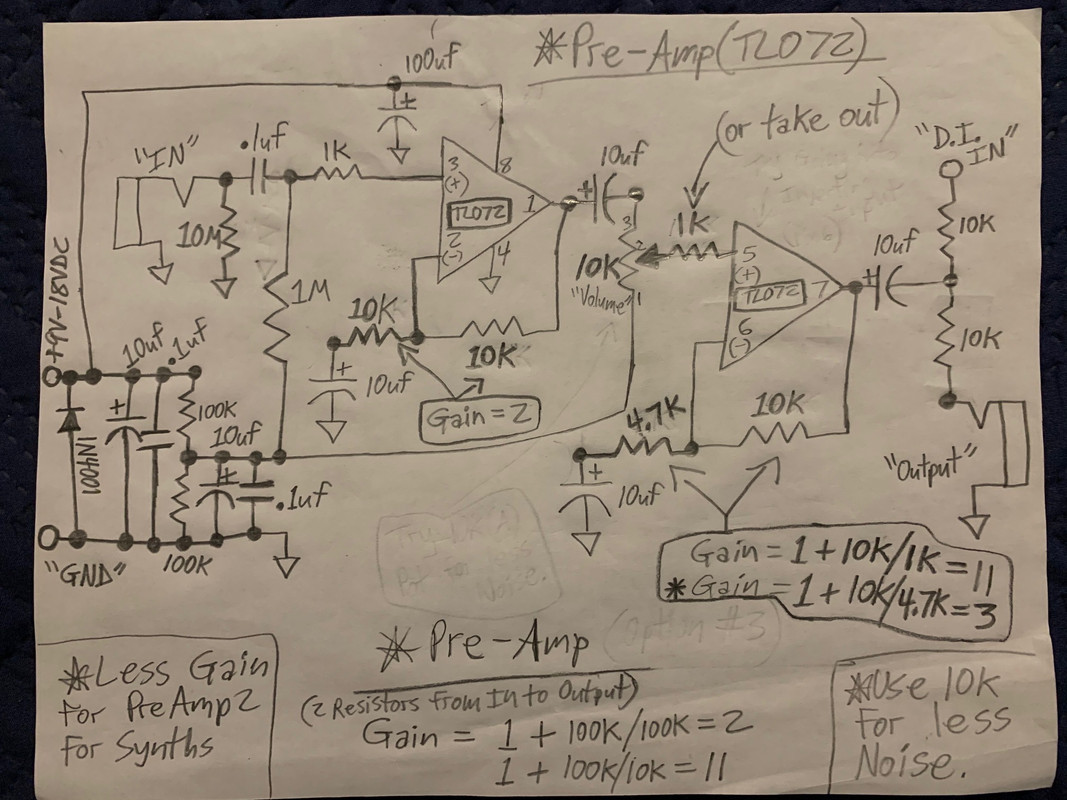 *Pre-Amp(TL072)
100uf
+
(or take out)
"IN"
.1uf
1K
3
(+)
8
TL072
1
2
(-)
4
10M
10uf
+
3
2
10K
"Volume"
1
1K
"D.I.
IN"
5
(+)
TL072
7
6
(-)
10uf
+
10K
10K
1M
10K
10K
+
10uf
Gain = 2
+9V-18VDC
10uf
.1uf
+
1N4001
100K
10uf
+
.1uf
100K
"GND"
4.7K
10K
+
10uf
"Output"
Gain = 1 + 10K/1K = 11
* Gain = 1 + 10K/4.7K = 3
Noise.
(Option #3)
*Less Gain
for PreAmp2
for Synths
* Pre-Amp
(2 Resistors from In to Output)
Gain = 1 + 100K/100K = 2
1 + 100K/10K = 11
*Use 10K
for less
Noise.